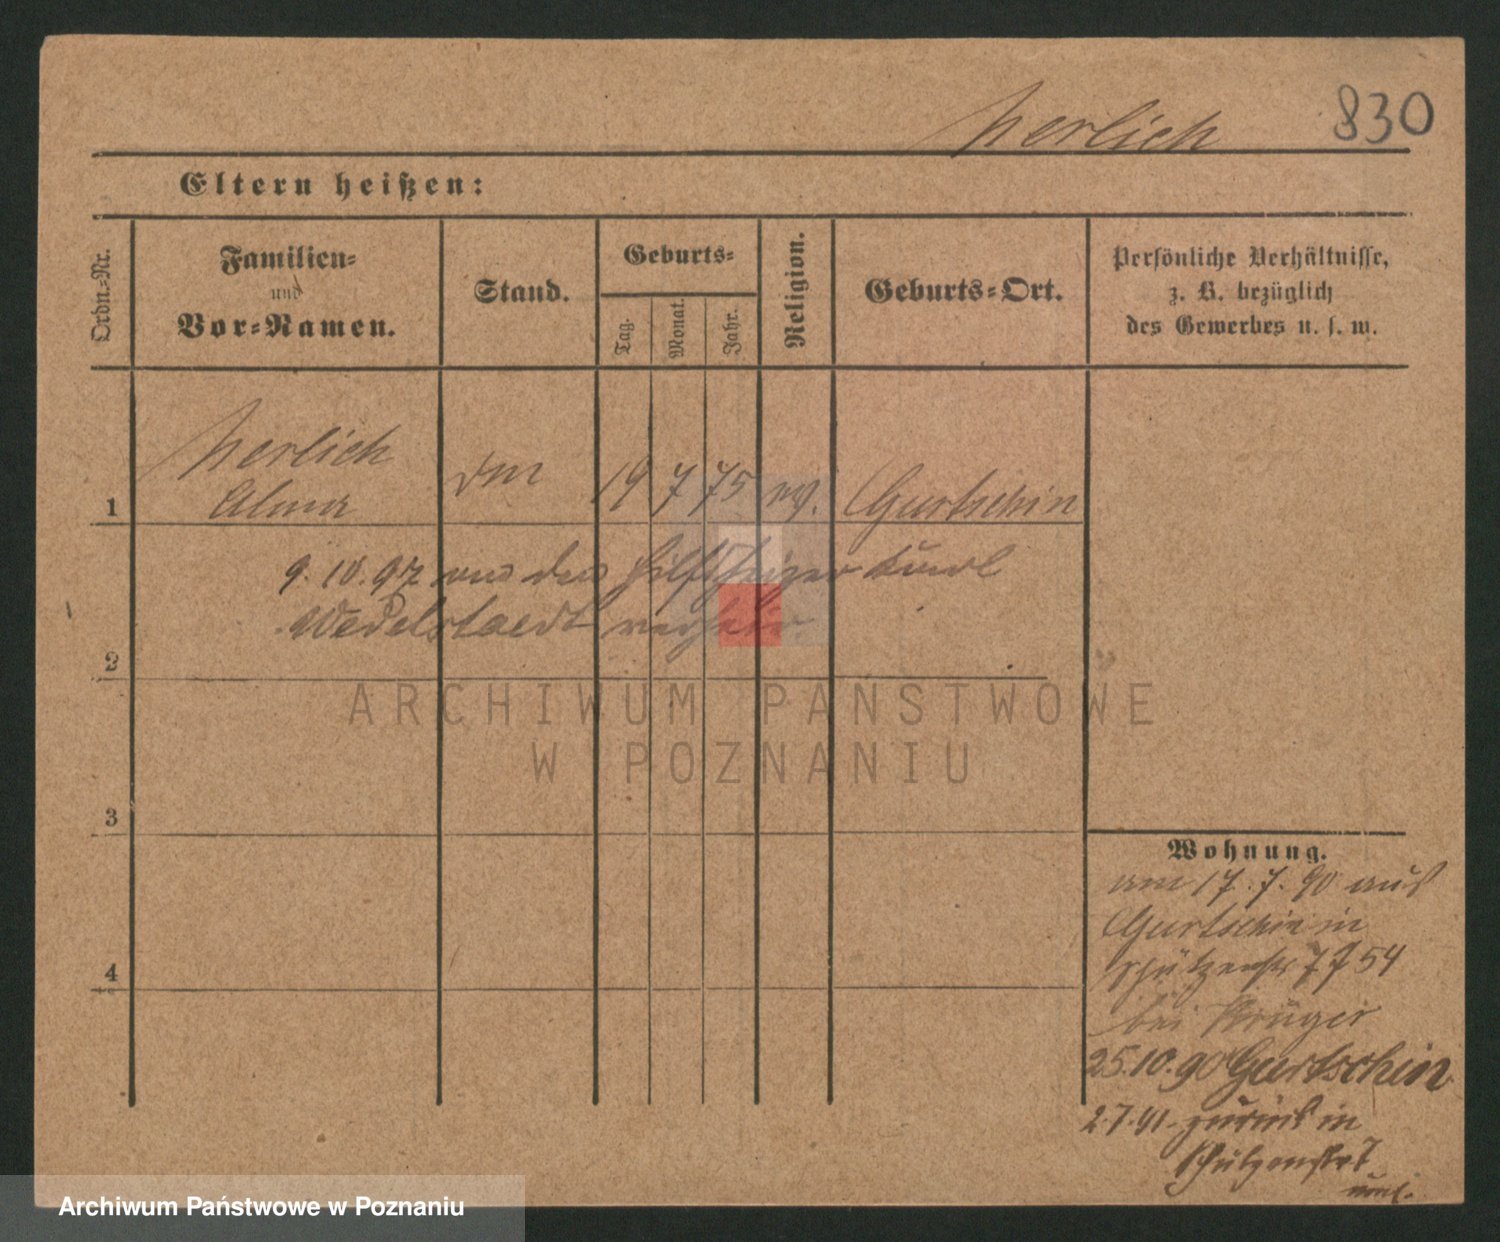 Nerlich 830
Eltern heißen:
Ordn.-Nr.
Familien-
und
Vor-Namen.
Stand.
Geburts-
Tag.
Monat.
Jahr.
Religion.
Geburts-Ort.
Persönliche Verhältnisse,
z. B. bezüglich
des Gewerbes u. s. w.
Nerlich
Alma
1 19 7 75 ev. Gurtschin
9.10.97 mit dem Hilfsheizer
Wedelstaedt verheir.
2
ARCHIWUM PAŃSTWOWE
W POZNANIU
3
4
Wohnung.
am 17.7.90 aus
Gurtschin in
Schützenstr 7 54
bei Krüger
25.10.90 Gurtschin
2.7.91 zurück in
Schützenstr 7
Archiwum Państwowe w Poznaniu